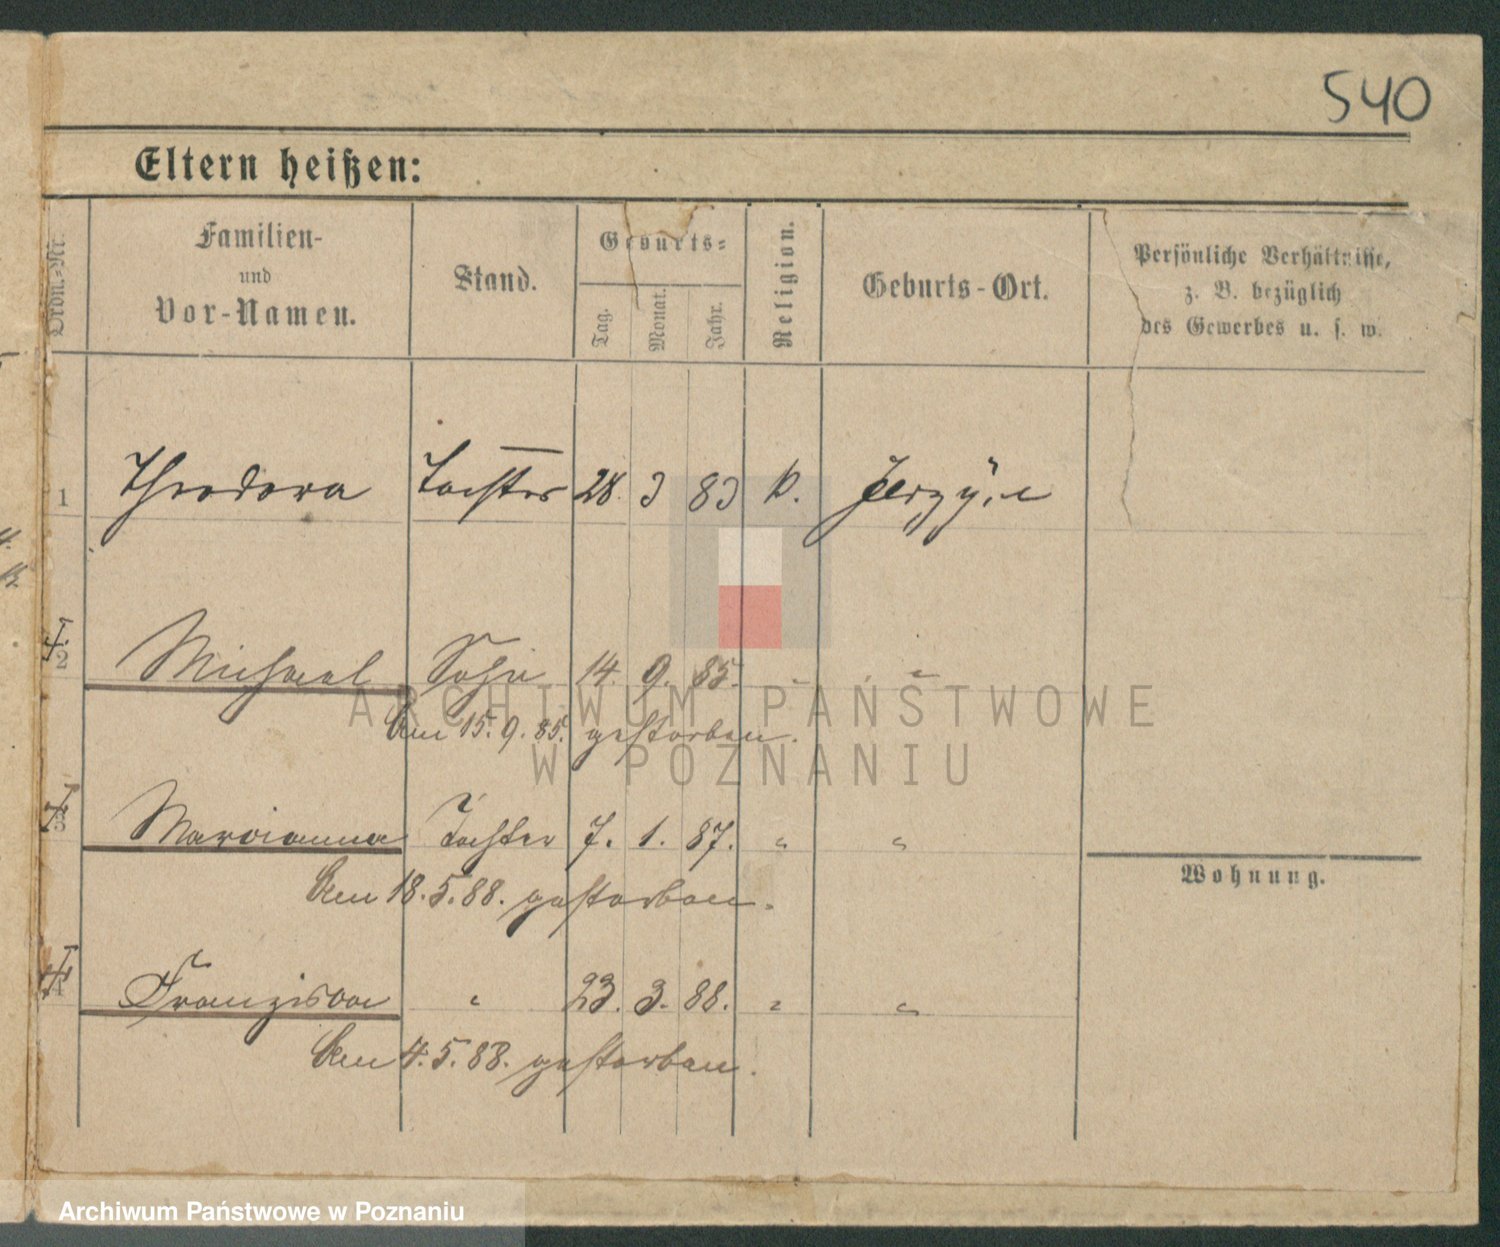 540
Eltern heißen:
Ordn.-Nr.
Familien-
und
Vor-Namen.
Stand.
Geburts-
Tag.
Monat.
Jahr.
Religion.
Geburts-Ort.
Persönliche Verhältnisse,
z. B. bezüglich
des Gewerbes u. s. w.
1 Theodora Tochter 28. 3 83 k.
2 Michael Sohn 14. 9. 85. " "
Am 15. 9. 85. gestorben.
3 Marianna Tochter 7. 1. 87. " "
Am 18. 5. 88. gestorben.
4 Franziska " 23. 3. 88. " "
Am 4. 5. 88. gestorben.
Wohnung.
ARCHIWUM PAŃSTWOWE
W POZNANIU
Archiwum Państwowe w Poznaniu